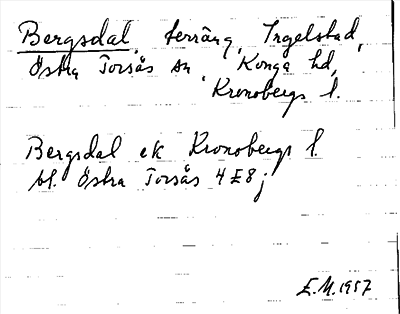 Bergsdal, terräng, Ingelstad,
Östra Torsås sn, Konga hd,
Kronobergs l.
Bergsdal ek Kronobergs l.
bl. Östra Torsås 4E8j
E.M. 1957